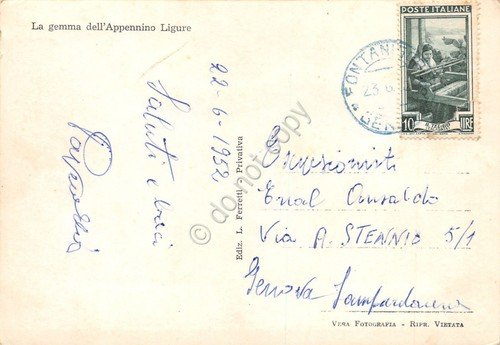 La gemma dell'Appennino Ligure
22-6-1952
Saluti e baci
Ediz. L. Ferretti - Privativa
POSTE ITALIANE
10 LIRE
FONTANI
23.6.
GEN
Enal Ansaldo
Via A. STENNIO 5/1
Genova Sampierdarena
VERA FOTOGRAFIA - RIPR. VIETATA
do not copy